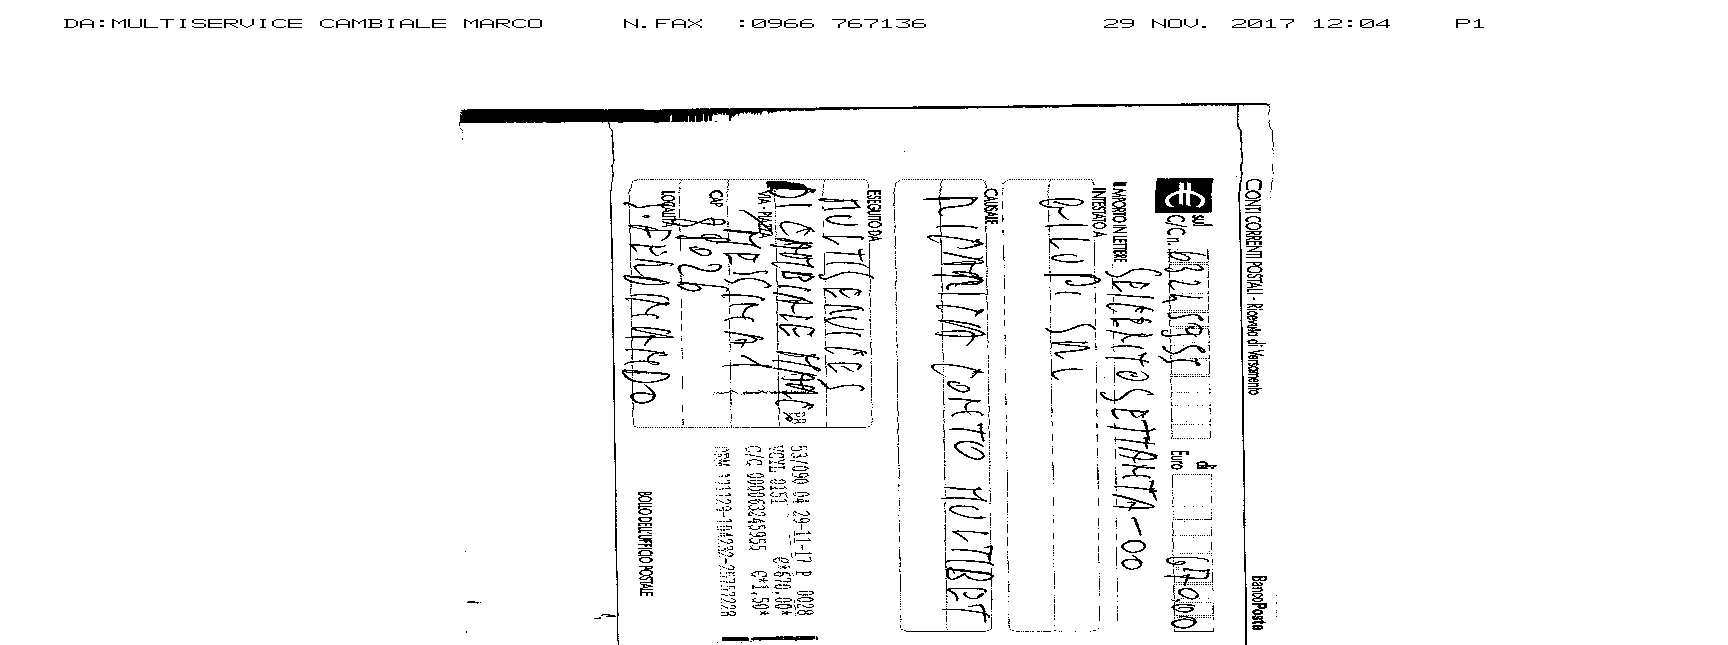 DA:MULTISERVICE CAMBIALE MARCO N.FAX :0966 767136 29 NOV. 2017 12:04 P1
CONTI CORRENTI POSTALI - Ricevuta di Versamento BancoPosta
€ sul C/C n. 63245955 di Euro 670,00
IMPORTO IN LETTERE SEICENTOSETTANTA-00
INTESTATO A
SRL
CAUSALE
RICARICA CONTO MULTIBET
ESEGUITO DA
MULTISERVICES
DI CAMBIALE MARCO
VIA - PIAZZA
MESSINA 1
CAP
89026
LOCALITÀ
S. FERDINANDO
53/090 04 29-11-17 P 0028
VCYL 0151 €*670,00*
C/C 000063245955 €*1,50*
BOLLO DELL'UFFICIO POSTALE